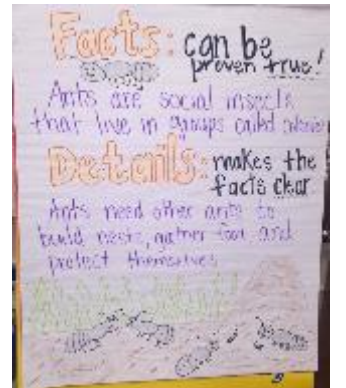 Facts: can be
proven true!
Ants are social insects
that live in groups called colonies
Details: makes the
facts clear
Ants need other ants to
build nests, gather food and
protect themselves